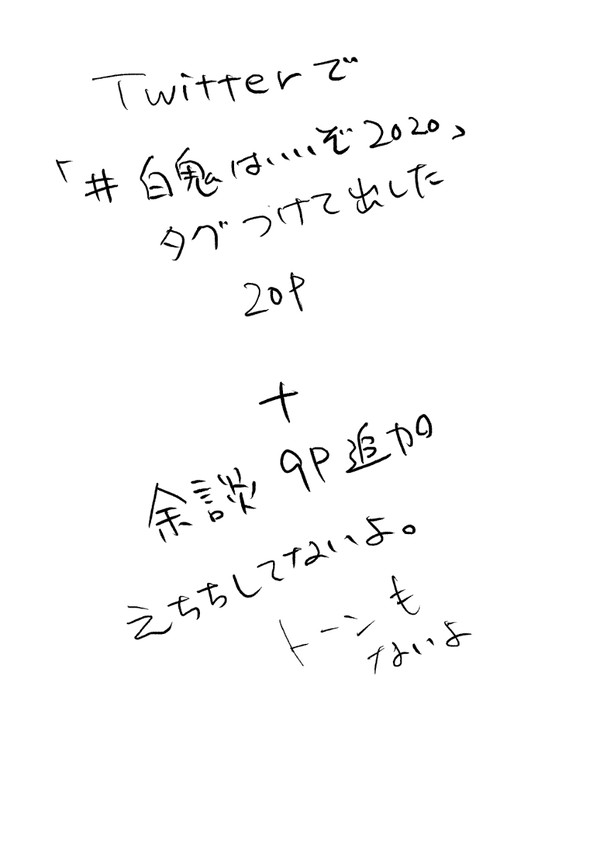 Twitterで
「#白鬼はいいぞ2020」
タグつけて出した
20P
+
余談 9P追加
えちちしてないよ。
トーンも
ないよ